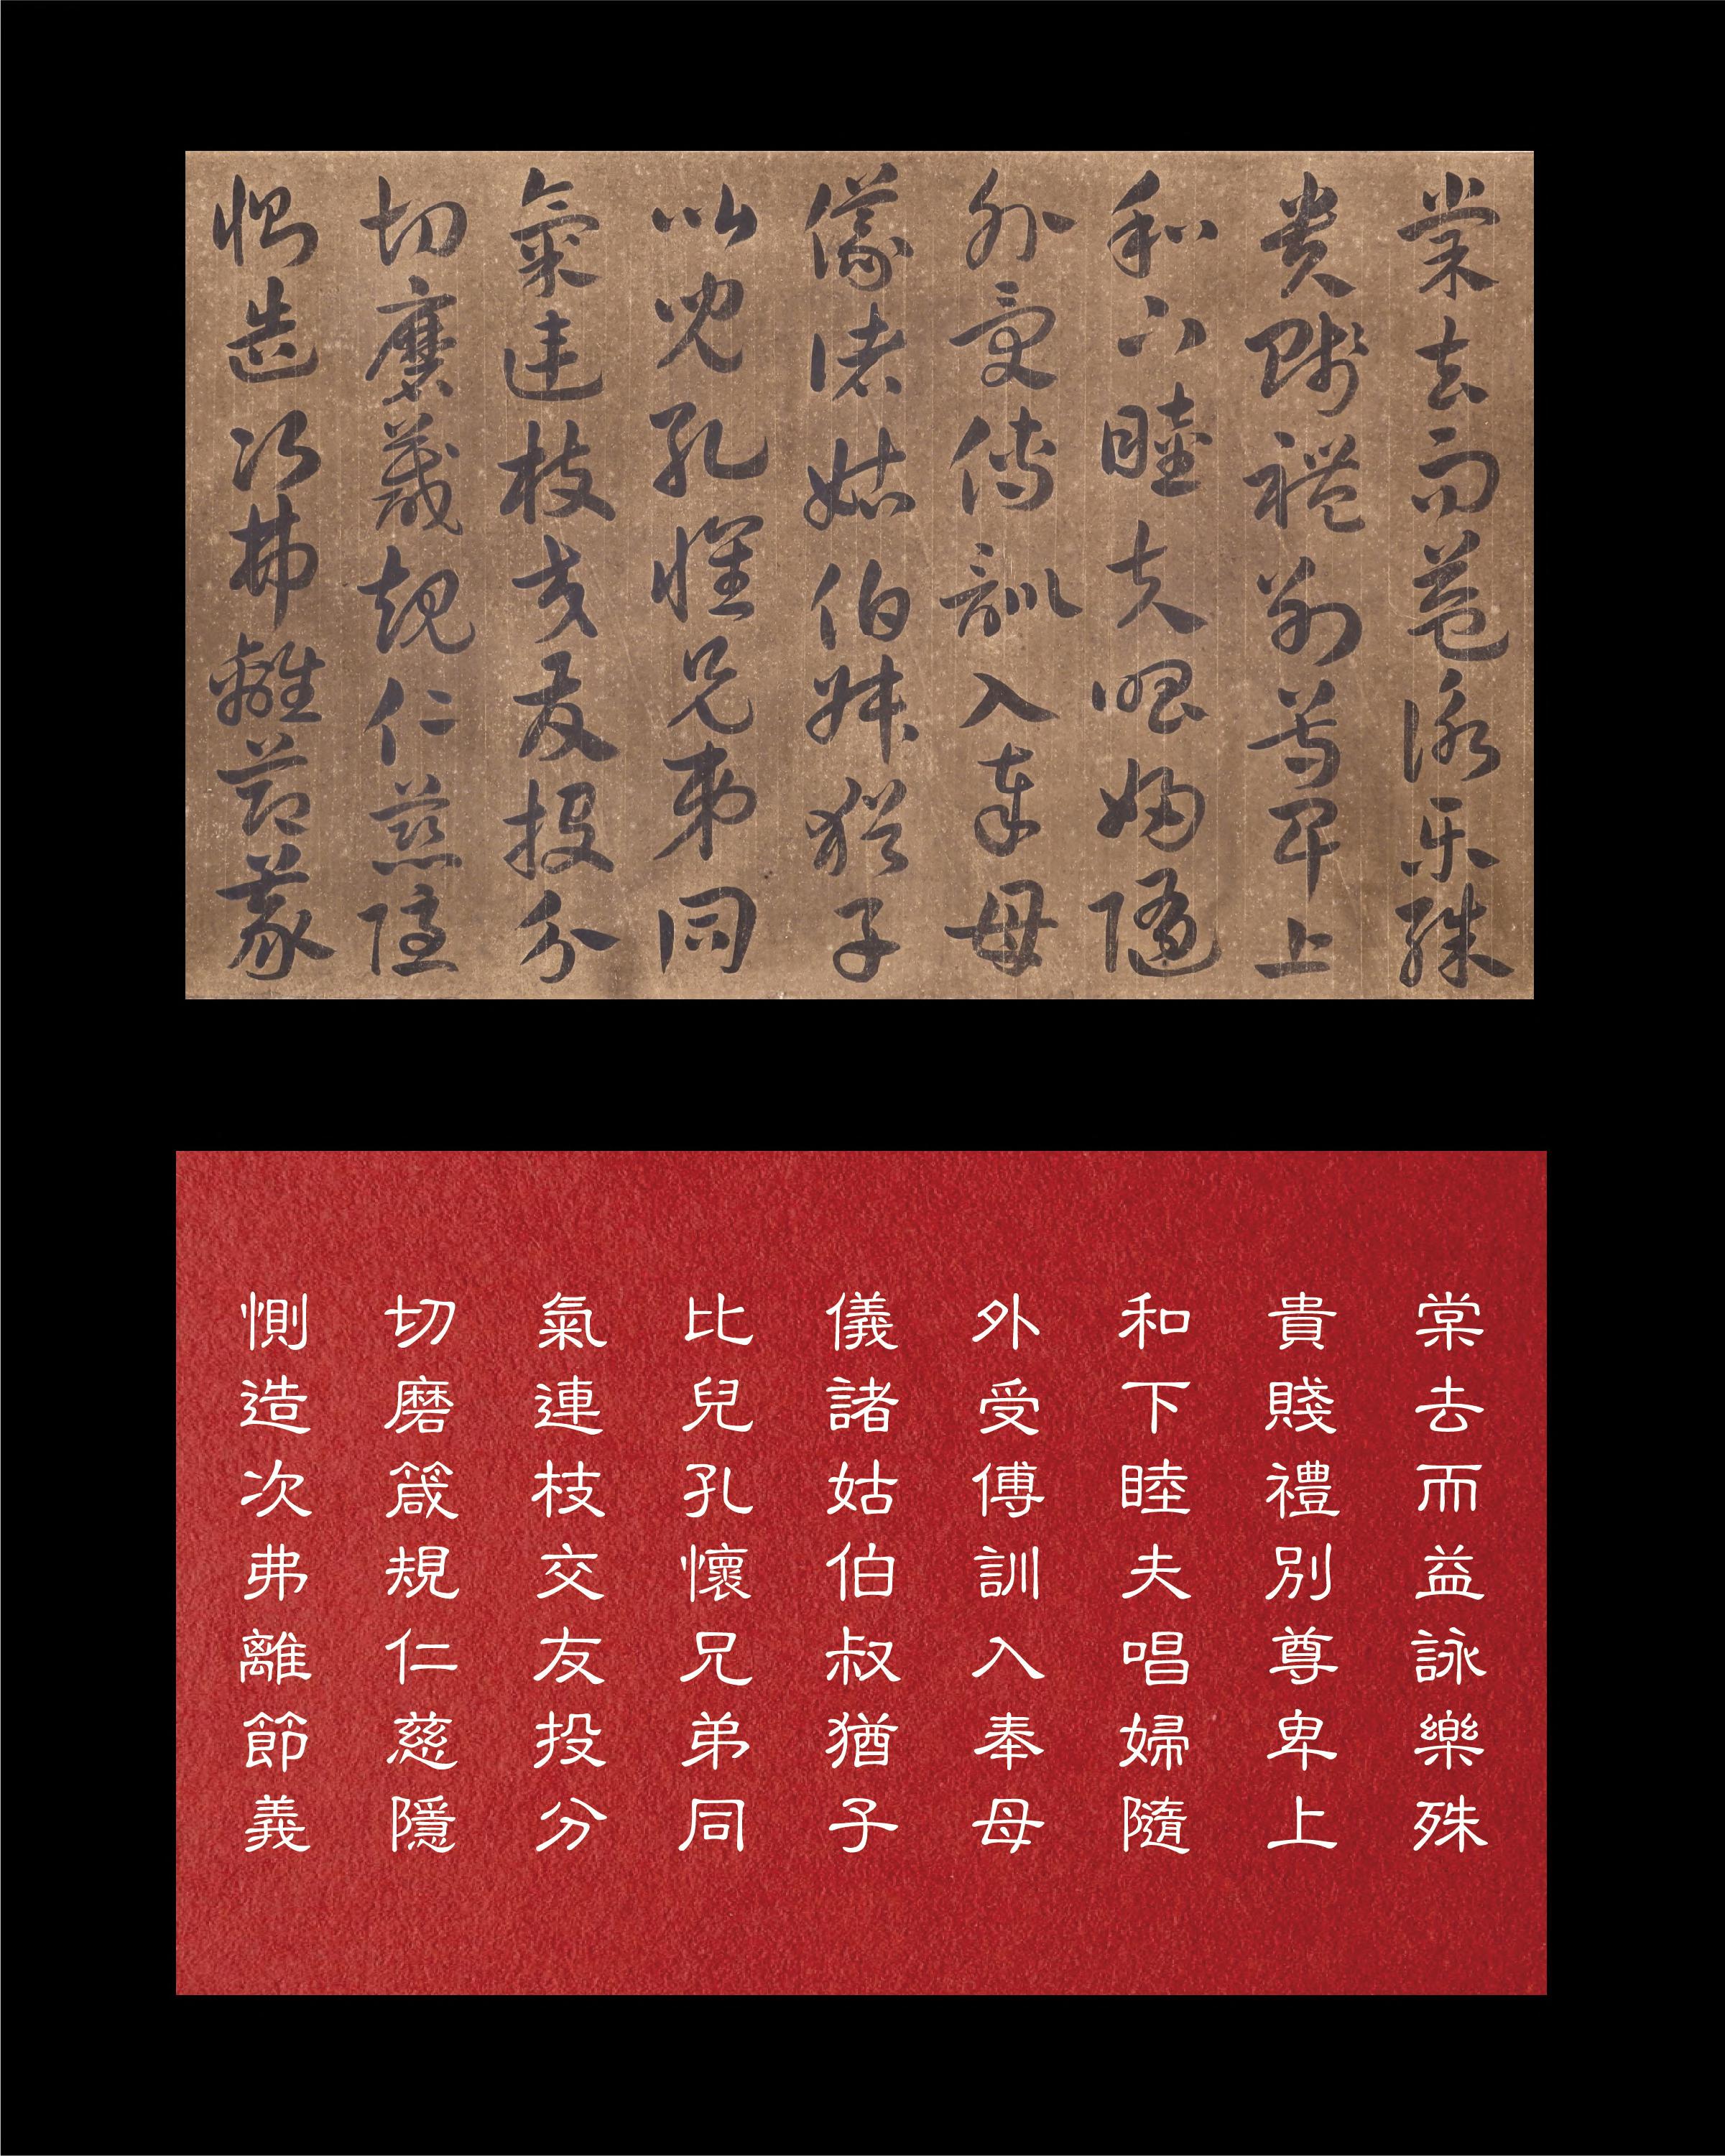 棠去而益詠樂殊
貴賤禮別尊卑上
和下睦夫唱婦隨
外受傅訓入奉母
儀諸姑伯叔猶子
比兒孔懷兄弟同
氣連枝交友投分
切磨箴規仁慈隱
惻造次弗離節義
棠去而益詠樂殊
貴賤禮別尊卑上
和下睦夫唱婦隨
外受傅訓入奉母
儀諸姑伯叔猶子
比兒孔懷兄弟同
氣連枝交友投分
切磨箴規仁慈隱
惻造次弗離節義